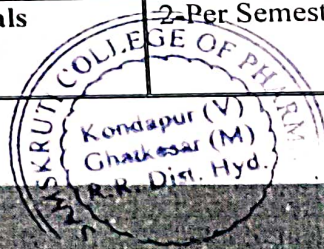 als
2-Per Semest
SKRUTI COLLEGE OF PHARM
Kondapur (V)
Ghatkesar (M)
R.R. Dist. Hyd.